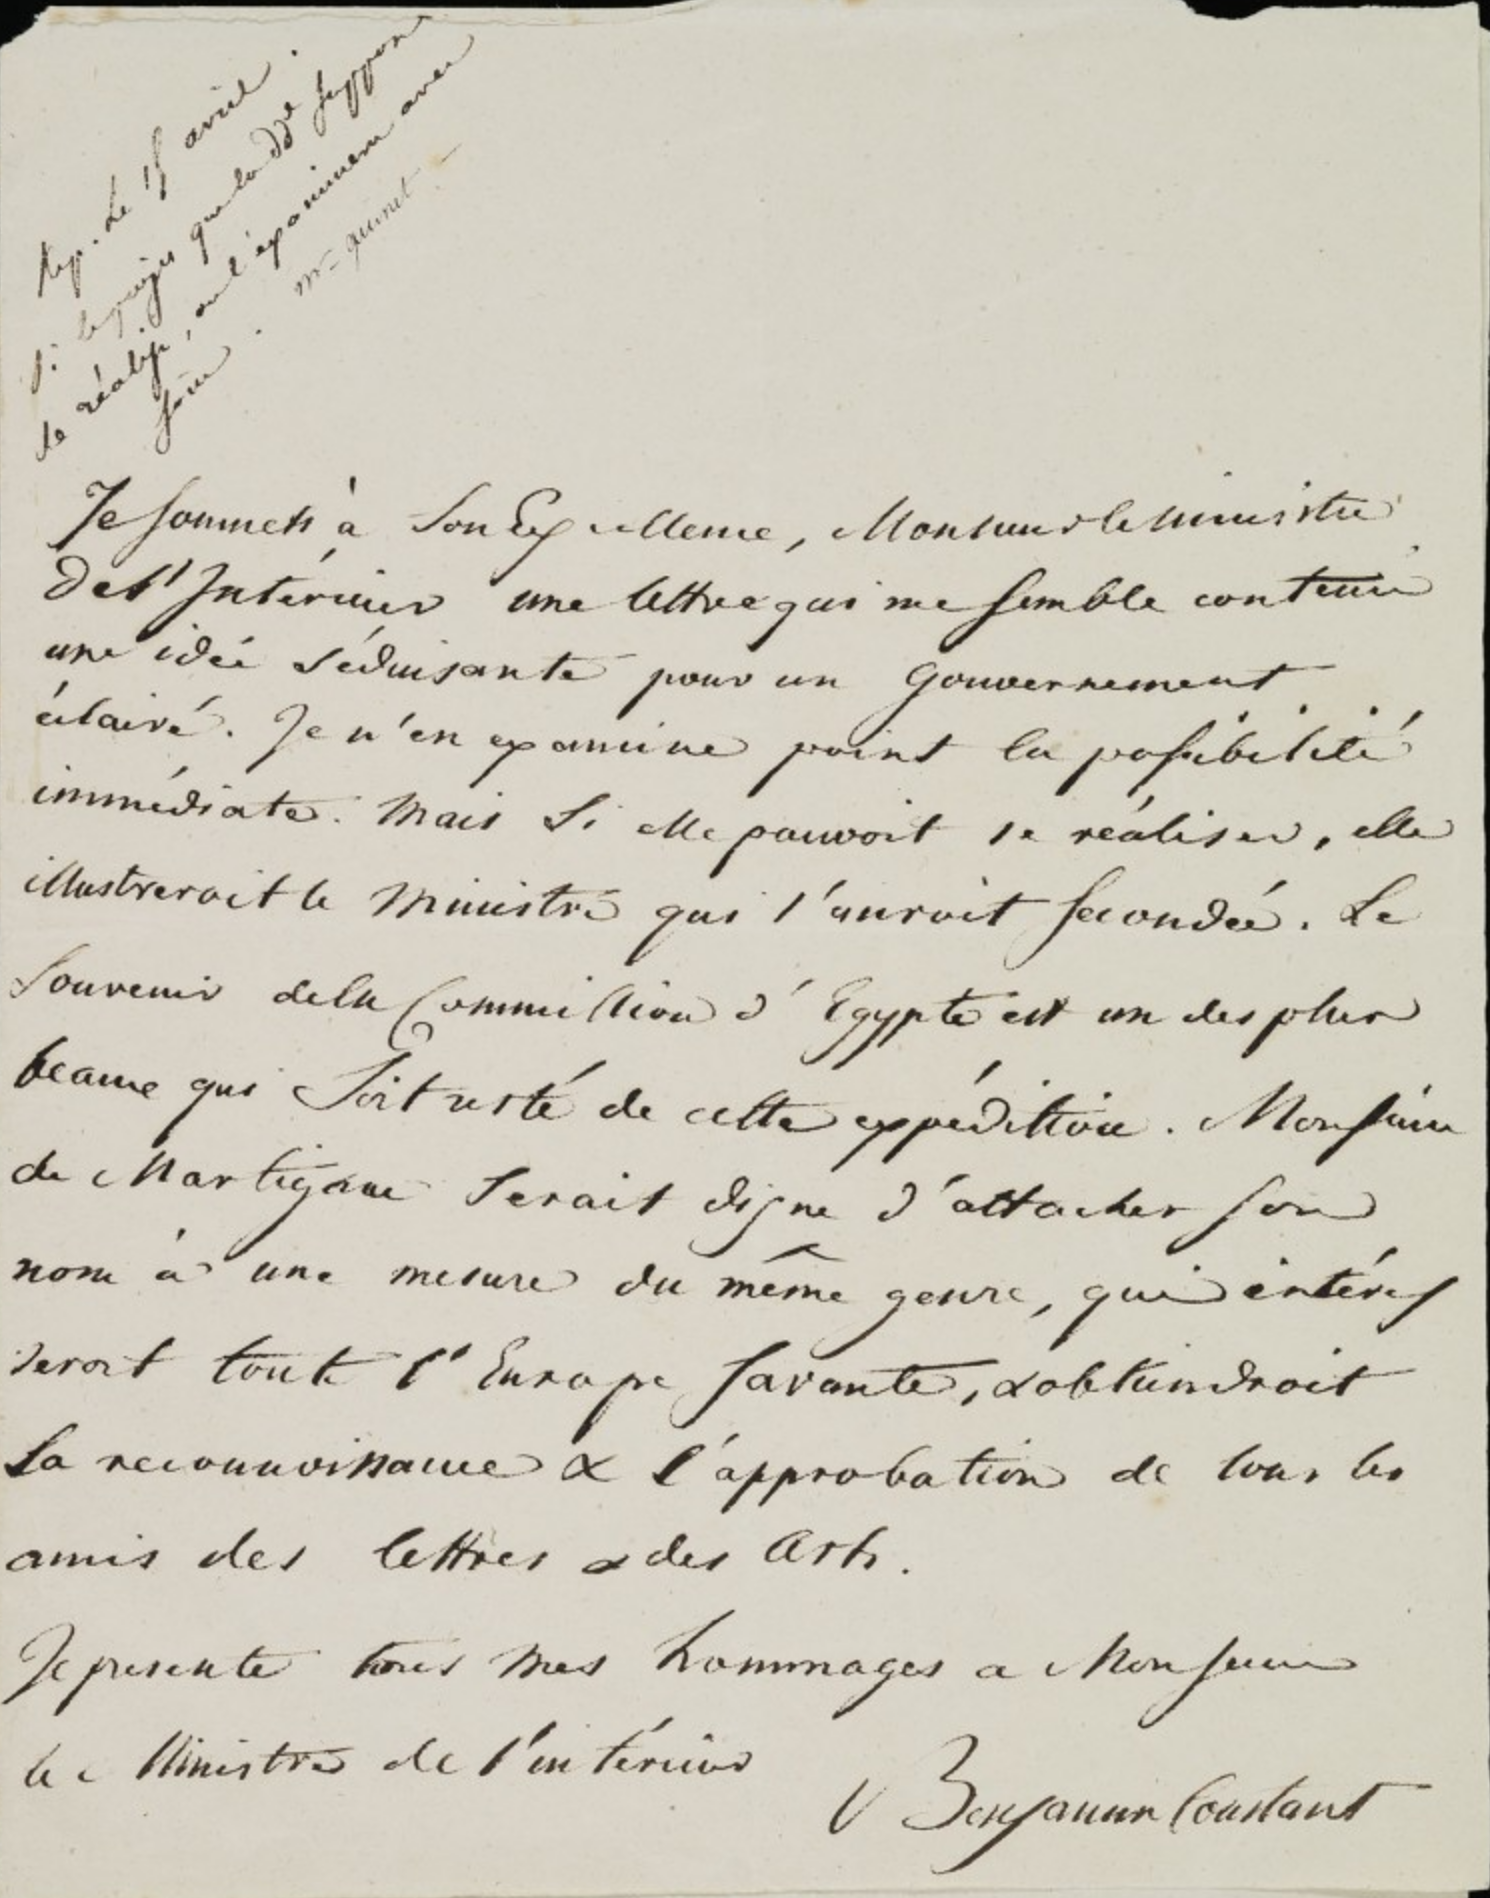 Rep. Le 15 avril.
si le projet que la d. suppose
se réalise, on l'examinera avec
soin.
mr. quinet
Je soumets à Son Excellence, Monsieur le ministre
de l'Intérieur une lettre qui me semble contenir
une idée séduisante pour un Gouvernement
éclairé. Je n'en examine point la possibilité
immédiate. Mais si elle pouvoit se réaliser, elle
illustreroit le Ministre qui l'auroit secondée. Le
souvenir de la Commission d'Egypte est un des plus
beaux qui soit resté de cette expédition. Monsieur
de Martignac serait digne d'attacher son
nom à une mesure du même genre, qui intéres
seroit toute l'Europe savante, & obtiendroit
la reconnoissance & l'approbation de tous les
amis des lettres & des Arts.
Je presente tous mes hommages a Monsieur
le Ministre de l'intérieur
Benjamin Constant